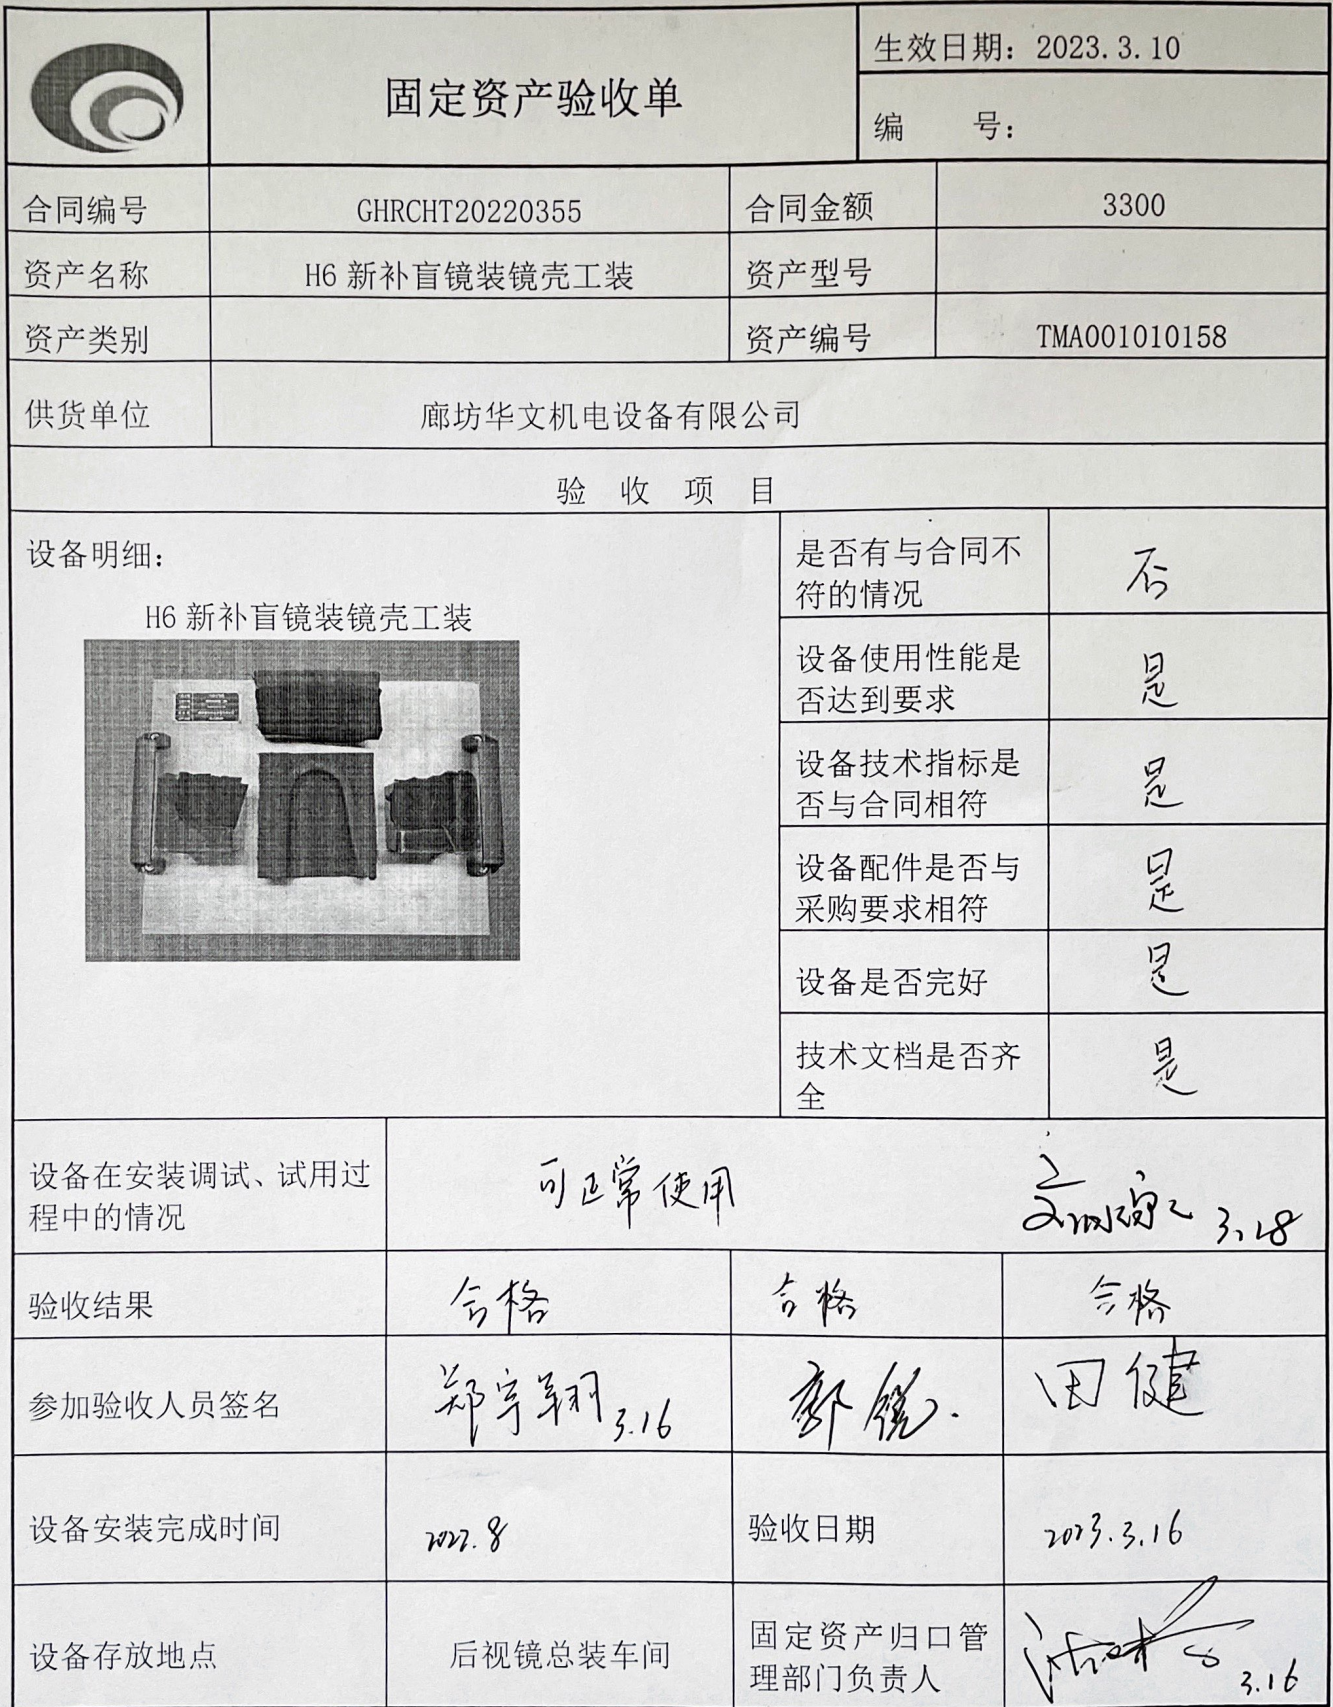 固定资产验收单
生效日期：2023.3.10
编 号：
合同编号 GHRCHT20220355 合同金额 3300
资产名称 H6 新补盲镜装镜壳工装 资产型号
资产类别 资产编号 TMA001010158
供货单位 廊坊华文机电设备有限公司
验 收 项 目
设备明细：
H6 新补盲镜装镜壳工装
是否有与合同不
符的情况
否
设备使用性能是
否达到要求
是
设备技术指标是
否与合同相符
是
设备配件是否与
采购要求相符
是
设备是否完好 是
技术文档是否齐
全
是
设备在安装调试、试用过
程中的情况
可正常使用
3.18
验收结果 合格 合格 合格
参加验收人员签名 郑宇翔 3.16 郭锐. 田健
设备安装完成时间 2022.8 验收日期 2023.3.16
设备存放地点 后视镜总装车间
固定资产归口管
理部门负责人
3.16